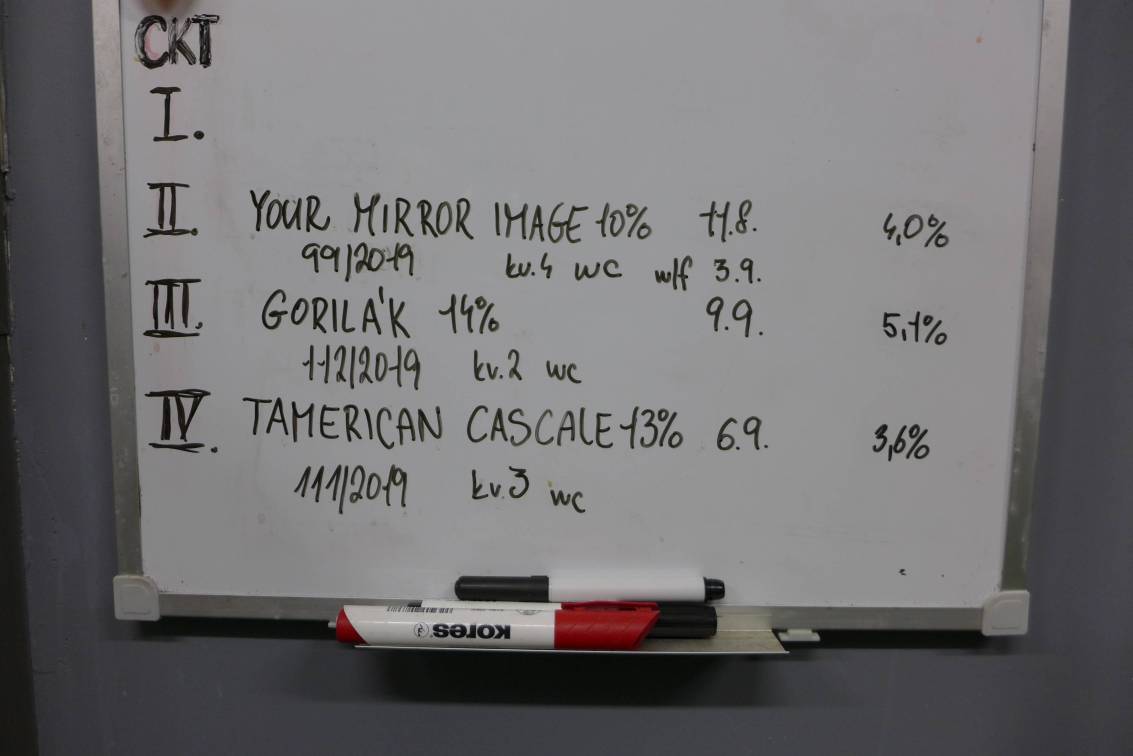 CKT
I.
II. YOUR MIRROR IMAGE 10% 11.8. 4,0%
99/2019 kv.4 wc w/f 3.9.
III. GORILA'K 14% 9.9. 5,1%
112/2019 kv.2 wc
IV. TAMERICAN CASCALE 13% 6.9. 3,6%
111/2019 kv.3 wc
Kores